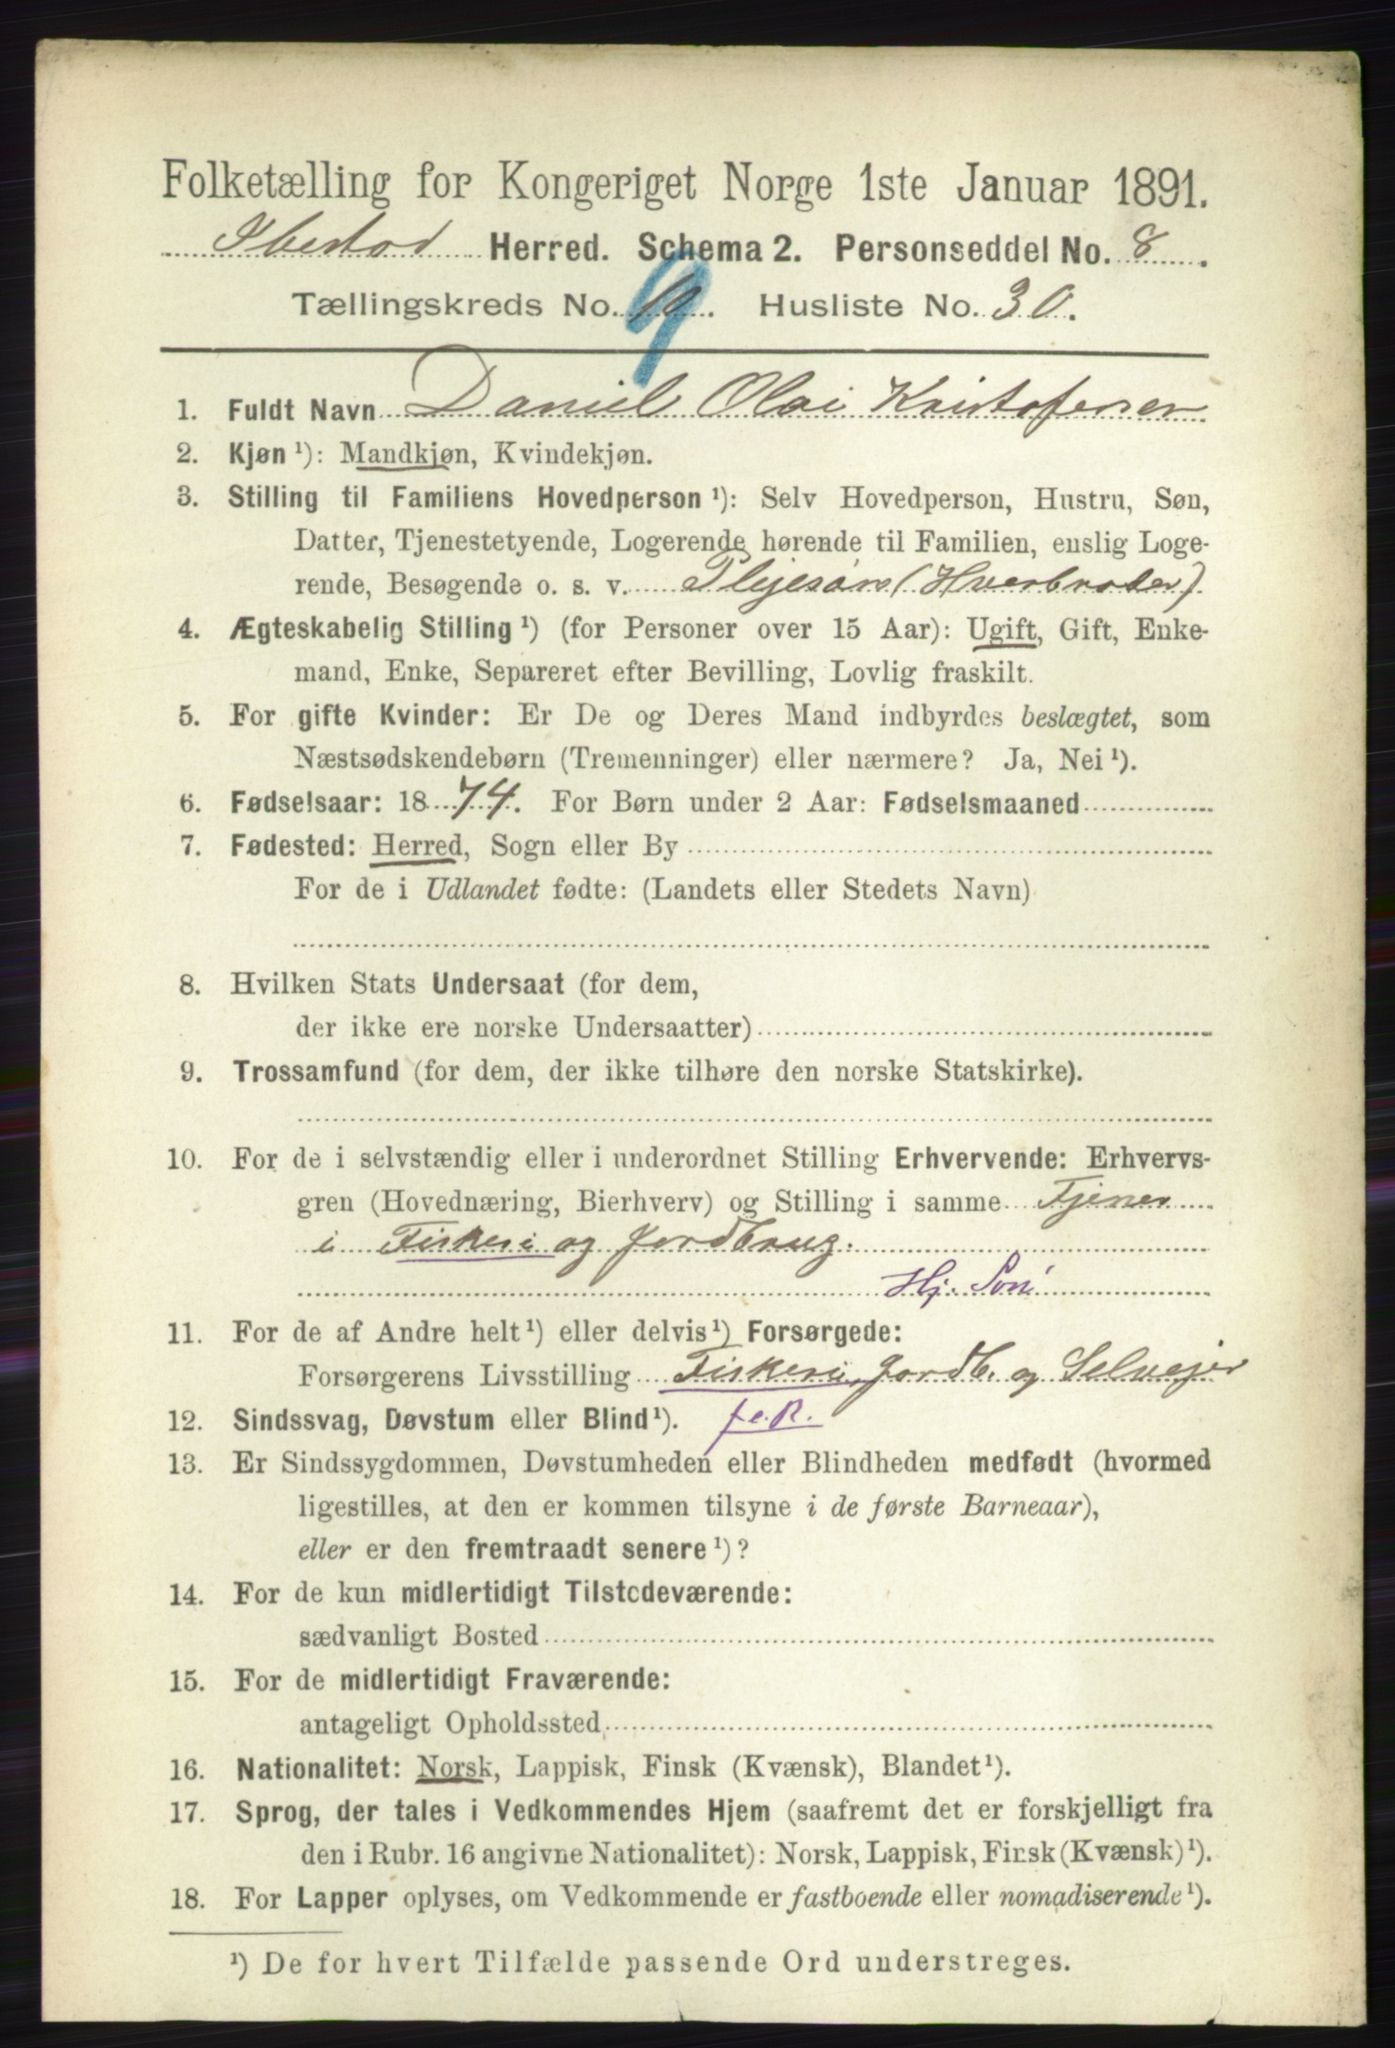 Folketælling for Kongeriget Norge 1ste Januar 1891.
Ibestad Herred. Schema 2. Personseddel No. 8.
Tællingskreds No. 9. Husliste No. 30.
1. Fuldt Navn Daniel Olai Kristofersen
2. Kjøn ¹): Mandkjøn, Kvindekjøn.
3. Stilling til Familiens Hovedperson ¹): Selv Hovedperson, Hustru, Søn,
Datter, Tjenestetyende, Logerende hørende til Familien, enslig Loge-
rende, Besøgende o. s. v. Plejesøn (Hverbroder).
4. Ægteskabelig Stilling ¹) (for Personer over 15 Aar): Ugift, Gift, Enke-
mand, Enke, Separeret efter Bevilling, Lovlig fraskilt.
5. For gifte Kvinder: Er De og Deres Mand indbyrdes beslægtet, som
Næstsødskendebørn (Tremenninger) eller nærmere? Ja, Nei ¹).
6. Fødselsaar: 1874. For Børn under 2 Aar: Fødselsmaaned
7. Fødested: Herred, Sogn eller By
For de i Udlandet fødte: (Landets eller Stedets Navn)
8. Hvilken Stats Undersaat (for dem,
der ikke ere norske Undersaatter)
9. Trossamfund (for dem, der ikke tilhøre den norske Statskirke).
10. For de i selvstændig eller i underordnet Stilling Erhvervende: Erhvervs-
gren (Hovednæring, Bierhverv) og Stilling i samme Tjener
i Fiskeri og Jordbrug.
Hj. Søn
11. For de af Andre helt ¹) eller delvis ¹) Forsørgede:
Forsørgerens Livsstilling Fiskeri, Jordb. og Selvejer
12. Sindssvag, Døvstum eller Blind ¹). f.e.R.
13. Er Sindssygdommen, Døvstumheden eller Blindheden medfødt (hvormed
ligestilles, at den er kommen tilsyne i de første Barneaar),
eller er den fremtraadt senere ¹)?
14. For de kun midlertidigt Tilstedeværende:
sædvanligt Bosted
15. For de midlertidigt Fraværende:
antageligt Opholdssted
16. Nationalitet: Norsk, Lappisk, Finsk (Kvænsk), Blandet ¹).
17. Sprog, der tales i Vedkommendes Hjem (saafremt det er forskjelligt fra
den i Rubr. 16 angivne Nationalitet): Norsk, Lappisk, Finsk (Kvænsk) ¹).
18. For Lapper oplyses, om Vedkommende er fastboende eller nomadiserende ¹).
¹) De for hvert Tilfælde passende Ord understreges.